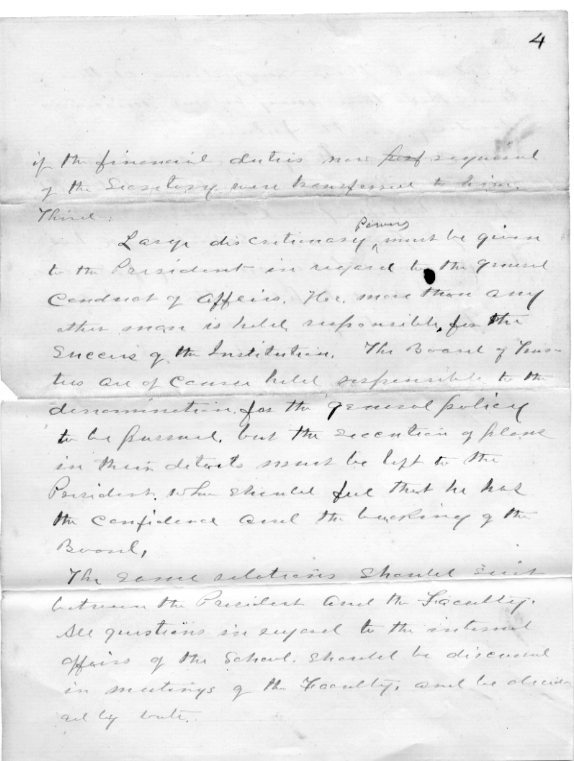 4
if the financial duties now required
of the Secretary were transferred to him.
Third.
Large discretionary powers must be given
to the President in regard to the general
Conduct of Affairs. He, more than any
other man is held responsible, for the
Success of the Institution. The Board of Trus-
tees are of course held responsible to the
denomination, for the general policy
to be pursued, but the execution of plans
in their details must be left to the
President, who should feel that he has
the Confidence and the backing of the
Board,
The same relations should exist
between the President and the Faculty.
All questions in regard to the internal
affairs of the School. should be discussed
in meetings of the Faculty, and be decid-
ed by vote.